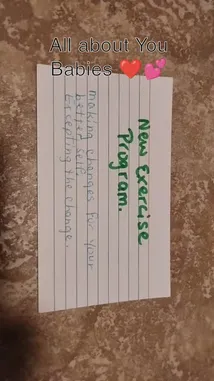 All about You
Babies ❤️ 💕
New Exercise
Program.
making changes for your
better self.
Excepting the change.